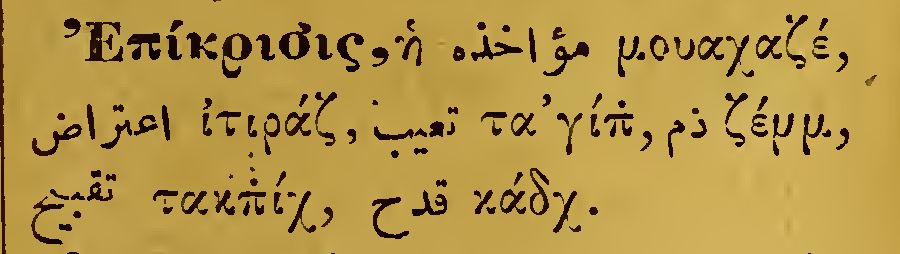 Ἐπίκρισις, ἡ مؤاخذه μουαχαζέ,
اعتراض ἰτιράζ, تعيب τα’γίπ̇, ذم ζέμμ,
تقبيح τακπ̇ίχ, قدح κάδχ.